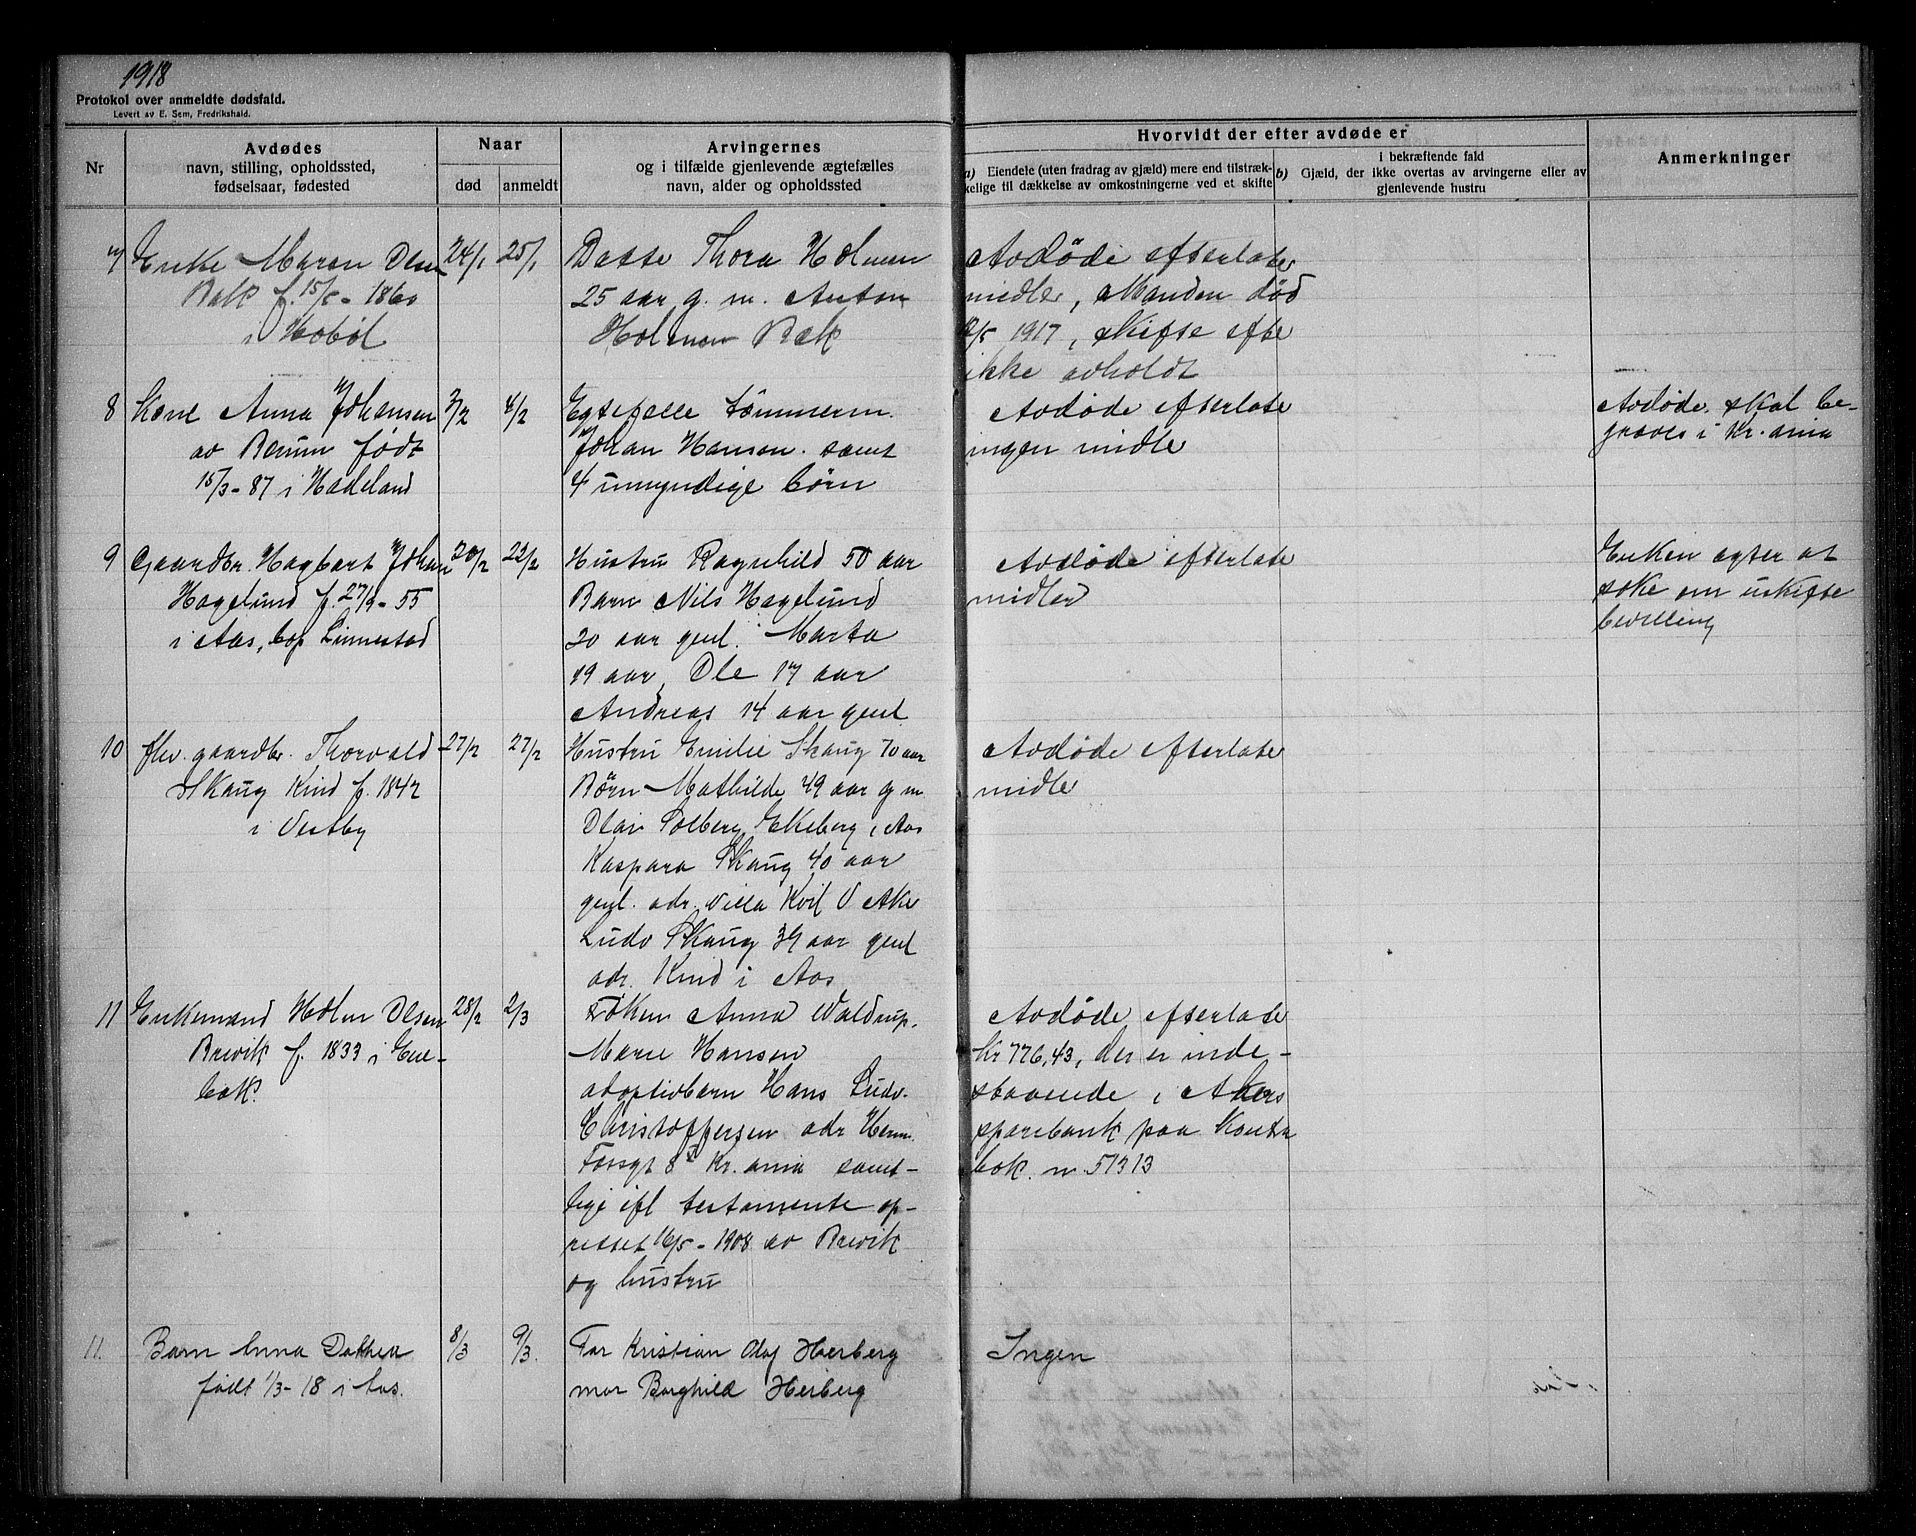 1918
Protokol over anmeldte dødsfald.
Levert av E. Sem, Fredrikshald.
Nr
Avdødes
navn, stilling, opholdssted,
fødselsaar, fødested
Naar
død
anmeldt
Arvingernes
og i tilfælde gjenlevende ægtefælles
navn, alder og opholdssted
Hvorvidt der efter avdøde er
a) Eiendele (uten fradrag av gjæld) mere end tilstræk-
kelige til dækkelse av omkostningerne ved et skifte
i bekræftende fald
b) Gjæld, der ikke overtas av arvingerne eller av
gjenlevende hustru
Anmerkninger
7
Enke Maren Olsen
Bæk f. 15/5 - 1860
i Hobøl
24/1
25/1
Datter Thora Holmen
25 aar g. m. Anton
Holmen Bæk
Avdøde efterlater
midler, Manden død
1917, skifte efter
ikke avholdt
8
Kone Anna Johansen
av Berum født
15/3 - 87 i Hadeland
3/2
4/2
Egtefelle tømmerm.
Johan Hansen samt
4 umyndige børn
Avdøde efterlater
ingen midler
Avdøde skal be-
graves i Kr.ania
9
Gaardbr. Hagbart Johan
Hagelund f. 27/9 - 55
i Aas, bop Linnestad
20/2
22/2
Hustru Ragnhild 50 aar
Barn Nils Hagelund
20 aar gml. Marta
19 aar, Ole 17 aar
Andreas 14 aar gml
Avdøde efterlater
midler
Enken agter at
søke om uskifte
bevilling
10
fhv. gaardbr. Thorvald
Skaug Kind f. 1842
i Vestby
27/2
27/2
Hustru Emilie Skaug 70 aar
Børn Mathilde 49 aar g m
Olav Solberg, Ekeberg i Aas
Kaspara Skaug 40 aar
gml. adr. Villa Kvil V Aker
Ludv Skaug 37 aar gml
adr. Kind i Aas
Avdøde efterlater
midler
11
Enkemand Holm Olsen
Brevik f. 1833 i Ene-
bak.
28/2
2/3
Frøken Anna Waldrup.
Marie Hansen
adoptivbarn Hans Ludv.
Christoffersen adr Herm.
Fossgt 8 Kr.ania samt-
lige ifl testamente op-
rettet 16/5 - 1908 av Brevik
og hustru
Avdøde efterlater
Kr 776,43, der er inde-
staaende i Akers
sparebank paa Kontra
bok. nr 51313
11.
Barn Anna Dakken
født 1/3 - 18 i Aas.
8/3
9/3.
Far Kristian Olaf Herberg
mor Borghild Herberg
Ingen